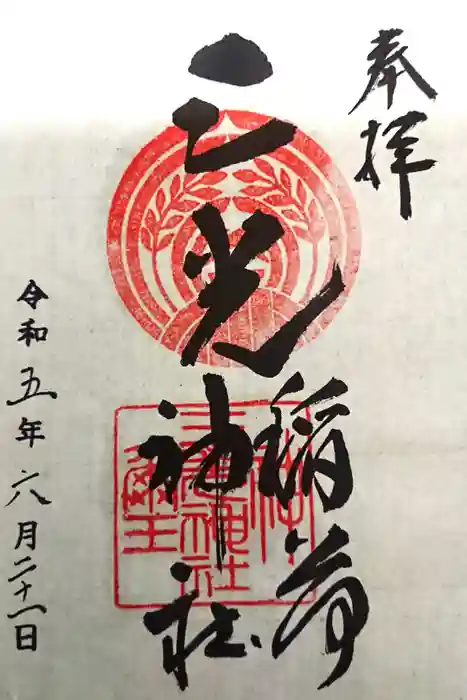 奉拝
三光稲荷神社
令和五年六月二十一日